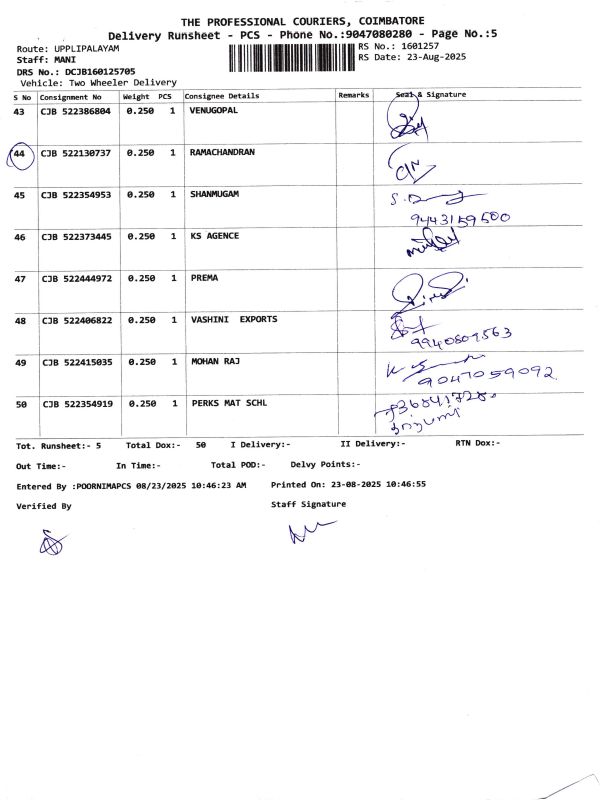 THE PROFESSIONAL COURIERS, COIMBATORE
Delivery Runsheet - PCS - Phone No.:9047080280 - Page No.:5
Route: UPPLIPALAYAM RS No.: 1601257
Staff: MANI RS Date: 23-Aug-2025
DRS No.: DCJB160125705
Vehicle: Two Wheeler Delivery
S No Consignment No Weight PCS Consignee Details Remarks Seal & Signature
43 CJB 522386804 0.250 1 VENUGOPAL
44 CJB 522130737 0.250 1 RAMACHANDRAN
45 CJB 522354953 0.250 1 SHANMUGAM
9443159500
46 CJB 522373445 0.250 1 KS AGENCE
47 CJB 522444972 0.250 1 PREMA
48 CJB 522406822 0.250 1 VASHINI EXPORTS
49 CJB 522415035 0.250 1 MOHAN RAJ
9047059092
50 CJB 522354919 0.250 1 PERKS MAT SCHL
Tot. Runsheet:- 5 Total Dox:- 50 I Delivery:- II Delivery:- RTN Dox:-
Out Time:- In Time:- Total POD:- Delvy Points:-
Entered By :POORNIMAPCS 08/23/2025 10:46:23 AM Printed On: 23-08-2025 10:46:55
Verified By Staff Signature